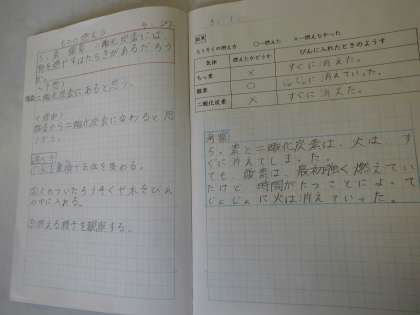 ものの燃え方
ちっ素、酸素、二酸化炭素には
物を燃やすはたらきがあるだろう
か。
〈予想〉
二酸化炭素にあると思う。
〈理由〉
酸素から二酸化炭素に変わると思
うから。
①びんに集気する気体を変える。
②火のついたろうそくをびんの
の中に入れる。
③燃える様子を観察する。
結果
ろうそくの燃え方 ○…燃えた ×…燃えなかった
気体 燃えたかどうか びんに入れたときのようす
ちっ素 × すぐに消えた。
酸素 ○ じょじょに消えていった。
二酸化炭素 × すぐに消えた。
考察
ちっ素と二酸化炭素は、火は、す
ぐに消えてしまった。
でも、酸素は、最初強く燃えてい
たけど、時間がたつことによって
じょじょに火は消えていった。